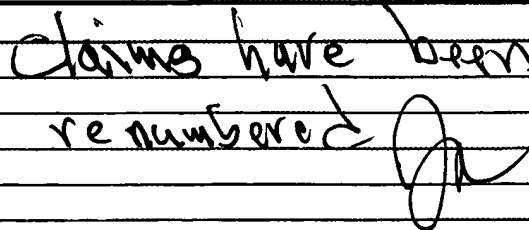 Claims have been
renumbered